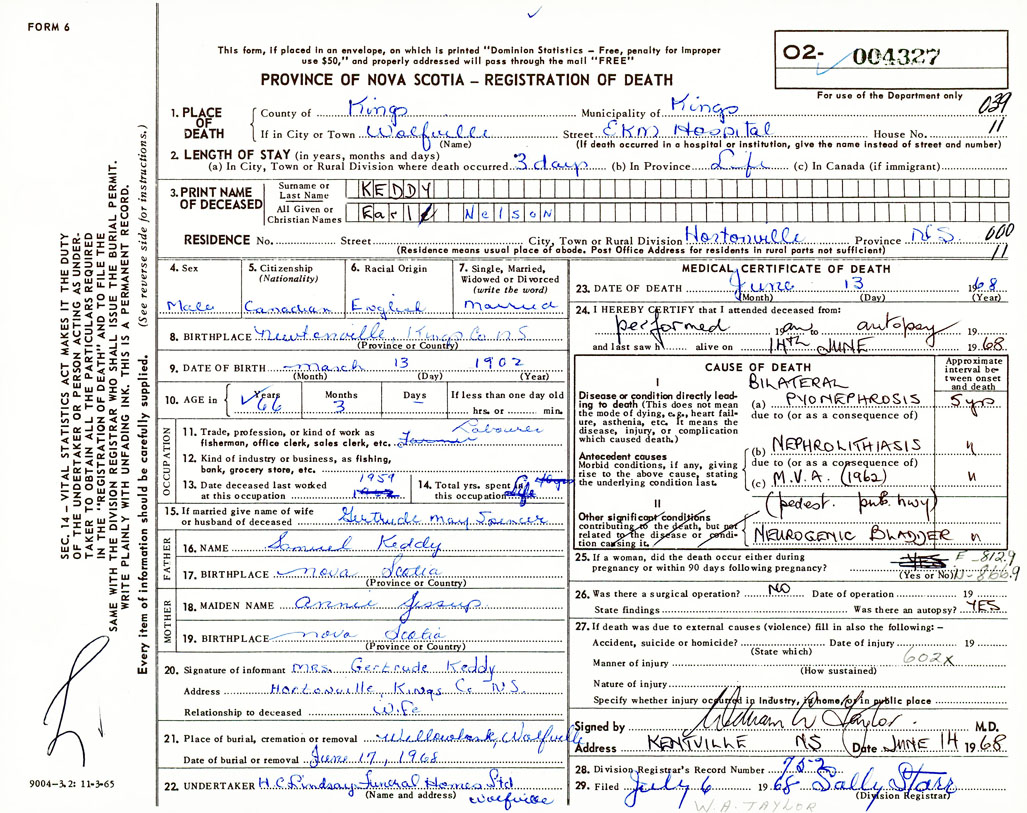 FORM 6
This form, if placed in an envelope, on which is printed "Dominion Statistics – Free, penalty for improper
use $50," and properly addressed will pass through the mail "FREE"
PROVINCE OF NOVA SCOTIA – REGISTRATION OF DEATH
O2- 004327
For use of the Department only
039
11
1. PLACE OF DEATH
County of Kings Municipality of Kings
If in City or Town Wolfville Street EKM Hospital House No.
(Name) (If death occurred in a hospital or institution, give the name instead of street and number)
2. LENGTH OF STAY (in years, months and days)
(a) In City, Town or Rural Division where death occurred 3 days (b) In Province Life (c) In Canada (if immigrant)
3. PRINT NAME OF DECEASED
Surname or Last Name KEDDY
All Given or Christian Names Earl Nelson
RESIDENCE No. Street City, Town or Rural Division Hortonville Province N.S.
(Residence means usual place of abode. Post Office Address for residents in rural parts not sufficient)
000
11
4. Sex Male
5. Citizenship (Nationality) Canadian
6. Racial Origin English
7. Single, Married, Widowed or Divorced (write the word) Married
8. BIRTHPLACE Newtonville, Kings Co. N.S.
(Province or Country)
9. DATE OF BIRTH March 13 1902
(Month) (Day) (Year)
10. AGE in Years 66 Months 3 Days – If less than one day old hrs. or min.
OCCUPATION
11. Trade, profession, or kind of work as fisherman, office clerk, sales clerk, etc. Farmer Labourer
12. Kind of industry or business, as fishing, bank, grocery store, etc.
13. Date deceased last worked at this occupation 1959
14. Total yrs. spent in this occupation Life
15. If married give name of wife or husband of deceased Gertrude Mary Spencer
FATHER
16. NAME Samuel Keddy
17. BIRTHPLACE Nova Scotia
(Province or Country)
MOTHER
18. MAIDEN NAME Annie Jessup
19. BIRTHPLACE Nova Scotia
(Province or Country)
20. Signature of informant Mrs. Gertrude Keddy
Address Hortonville, Kings Co N.S.
Relationship to deceased Wife
21. Place of burial, cremation or removal Willowbank, Wolfville
Date of burial or removal June 17, 1968
22. UNDERTAKER H.C. Lindsay Funeral Homes Ltd
(Name and address) Wolfville
MEDICAL CERTIFICATE OF DEATH
23. DATE OF DEATH June 13 1968
(Month) (Day) (Year)
24. I HEREBY CERTIFY that I attended deceased from:
performed 19 an to autopsy 19
and last saw h alive on 14th JUNE 1968.
CAUSE OF DEATH
Approximate interval between onset and death
I
Disease or condition directly leading to death (This does not mean the mode of dying, e.g., heart failure, asthenia, etc. It means the disease, injury, or complication which caused death.)
BILATERAL
(a) PYONEPHROSIS 5 yrs
due to (or as a consequence of)
Antecedent causes
Morbid conditions, if any, giving rise to the above cause, stating the underlying condition last.
(b) NEPHROLITHIASIS "
due to (or as a consequence of)
(c) M.V.A. (1962) "
(pedest. pub. hwy)
II
Other significant conditions contributing to the death, but not related to the disease or condition causing it.
NEUROGENIC BLADDER "
25. If a woman, did the death occur either during pregnancy or within 90 days following pregnancy? YES
(Yes or No)
E-812.9
N-866.9
26. Was there a surgical operation? NO Date of operation 19
State findings Was there an autopsy? YES
27. If death was due to external causes (violence) fill in also the following: –
Accident, suicide or homicide? Date of injury 19
(State which) 602X
Manner of injury
(How sustained)
Nature of injury
Specify whether injury occurred in Industry, in home, or in public place
Signed by William W Taylor M.D.
Address KENTVILLE NS Date JUNE 14 1968
28. Division Registrar's Record Number 752
29. Filed July 6 1968 Sally Starr
(Division Registrar)
W.A. TAYLOR
SEC. 14 – VITAL STATISTICS ACT MAKES IT THE DUTY
OF THE UNDERTAKER OR PERSON ACTING AS UNDER-
TAKER TO OBTAIN ALL THE PARTICULARS REQUIRED
IN THE "REGISTRATION OF DEATH" AND TO FILE THE
SAME WITH THE DIVISION REGISTRAR WHO SHALL ISSUE THE BURIAL PERMIT.
WRITE PLAINLY WITH UNFADING INK. THIS IS A PERMANENT RECORD.
Every item of information should be carefully supplied. (See reverse side for instructions.)
9004-3.2: 11-3-65